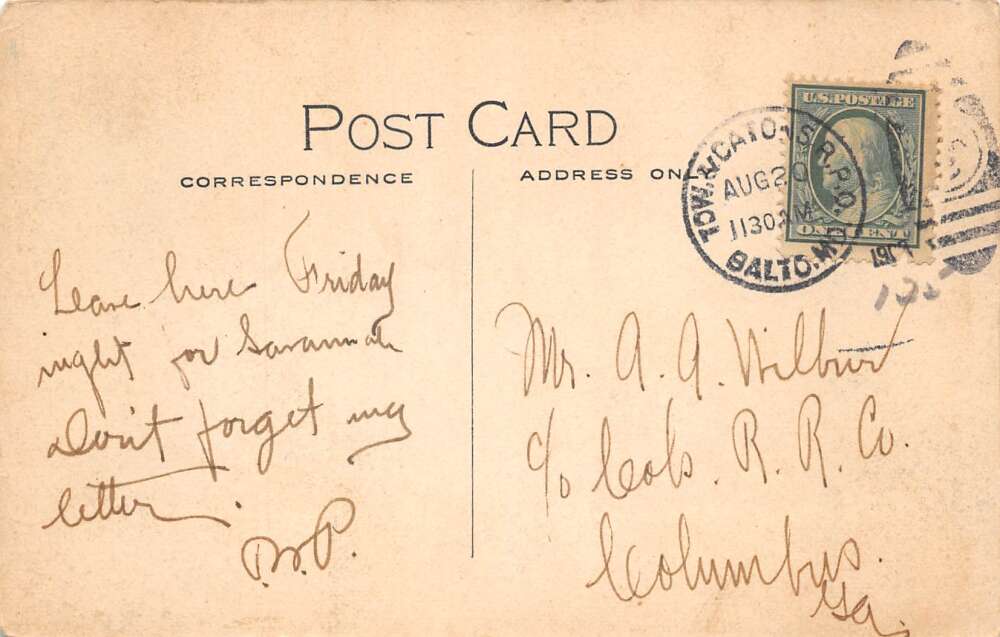 POST CARD
CORRESPONDENCE
ADDRESS ONL
U.S. POSTAGE
ONE CENT
TOW. & CATONS R.P.O.
AUG 20
1130 AM
BALTO. MD
Leave here Friday
night for Savannah
Don't forget my
letter.
Mr. A. A. Wilbur
c/o Cols. R. R. Co.
Columbus.
Ga.